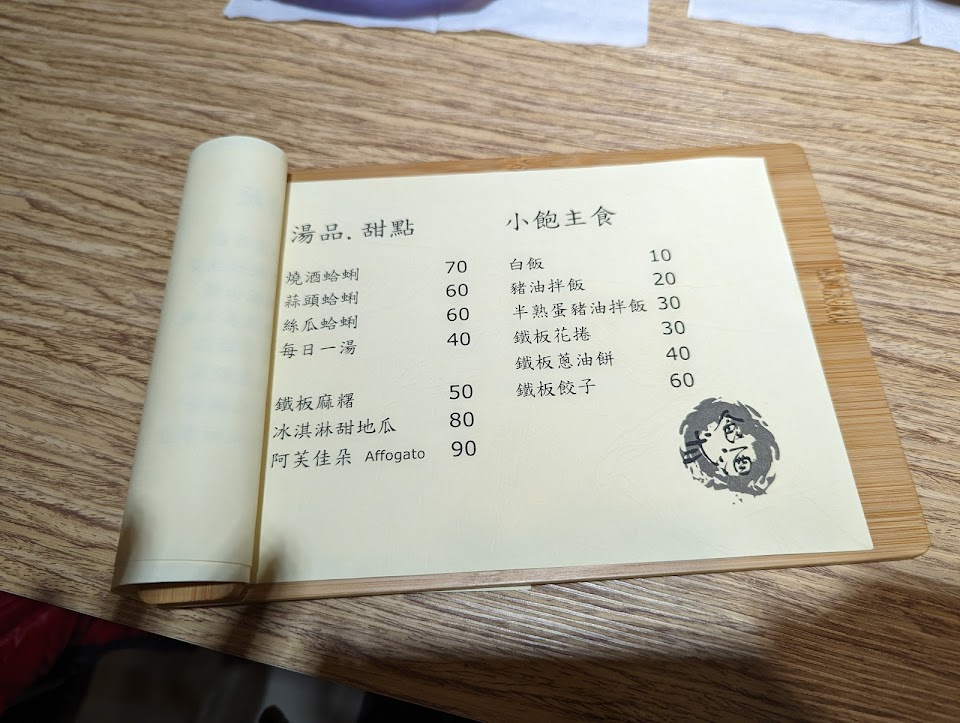 湯品.甜點
燒酒蛤蜊 70
蒜頭蛤蜊 60
絲瓜蛤蜊 60
每日一湯 40
鐵板麻糬 50
冰淇淋甜地瓜 80
阿芙佳朵 Affogato 90
小飽主食
白飯 10
豬油拌飯 20
半熟蛋豬油拌飯 30
鐵板花捲 30
鐵板蔥油餅 40
鐵板餃子 60
食
酒